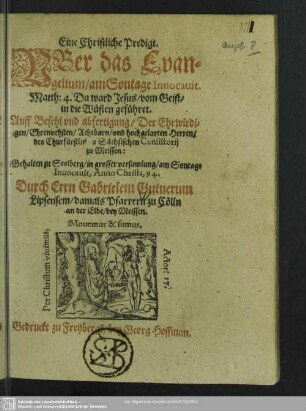 Eine Christliche Predigt.
Vber das Evan-
gelium / am Sontage Innocauit.
Matth: 4. Da ward Jesus / vom Geist /
in die Wüsten geführet.
Auff Befehl vnd abfertigung / Der Ehrwirdi-
gen / Ehrnvehsten / Achtbarn / vnd hochgelarten Herren /
des Churfürstl: Sächsischen Consistorij
zu Meissen:
Gehalten zu Stolberg / in grosser versamlung / am Sontage
Inuocauit, Anno Christi, 94.
Durch Ern Gabrielem
Lipsensem / damals Pfarrern zu Cölln
an der Elbe / bey Meissen.
Mouemur & sumus,
Per Christum viuimus,
Actor: 17.
Gedruckt zu Freybergk, bey Georg Hoffman.